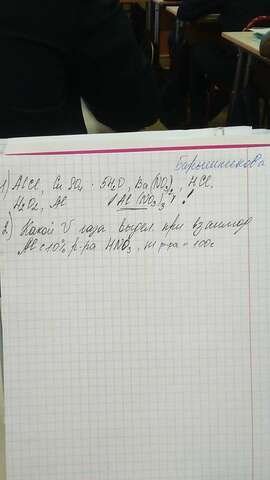 Барышникова
1) AlCl, CuSO₄ · 5H₂O, Ba(NO₃)₂, HCl,
H₂O₂, Al ! Al(NO₃)₃ !
2) Какой V газа выдел. при взаимод
Al с 10% р-ра HNO₃, m р-ра = 100г